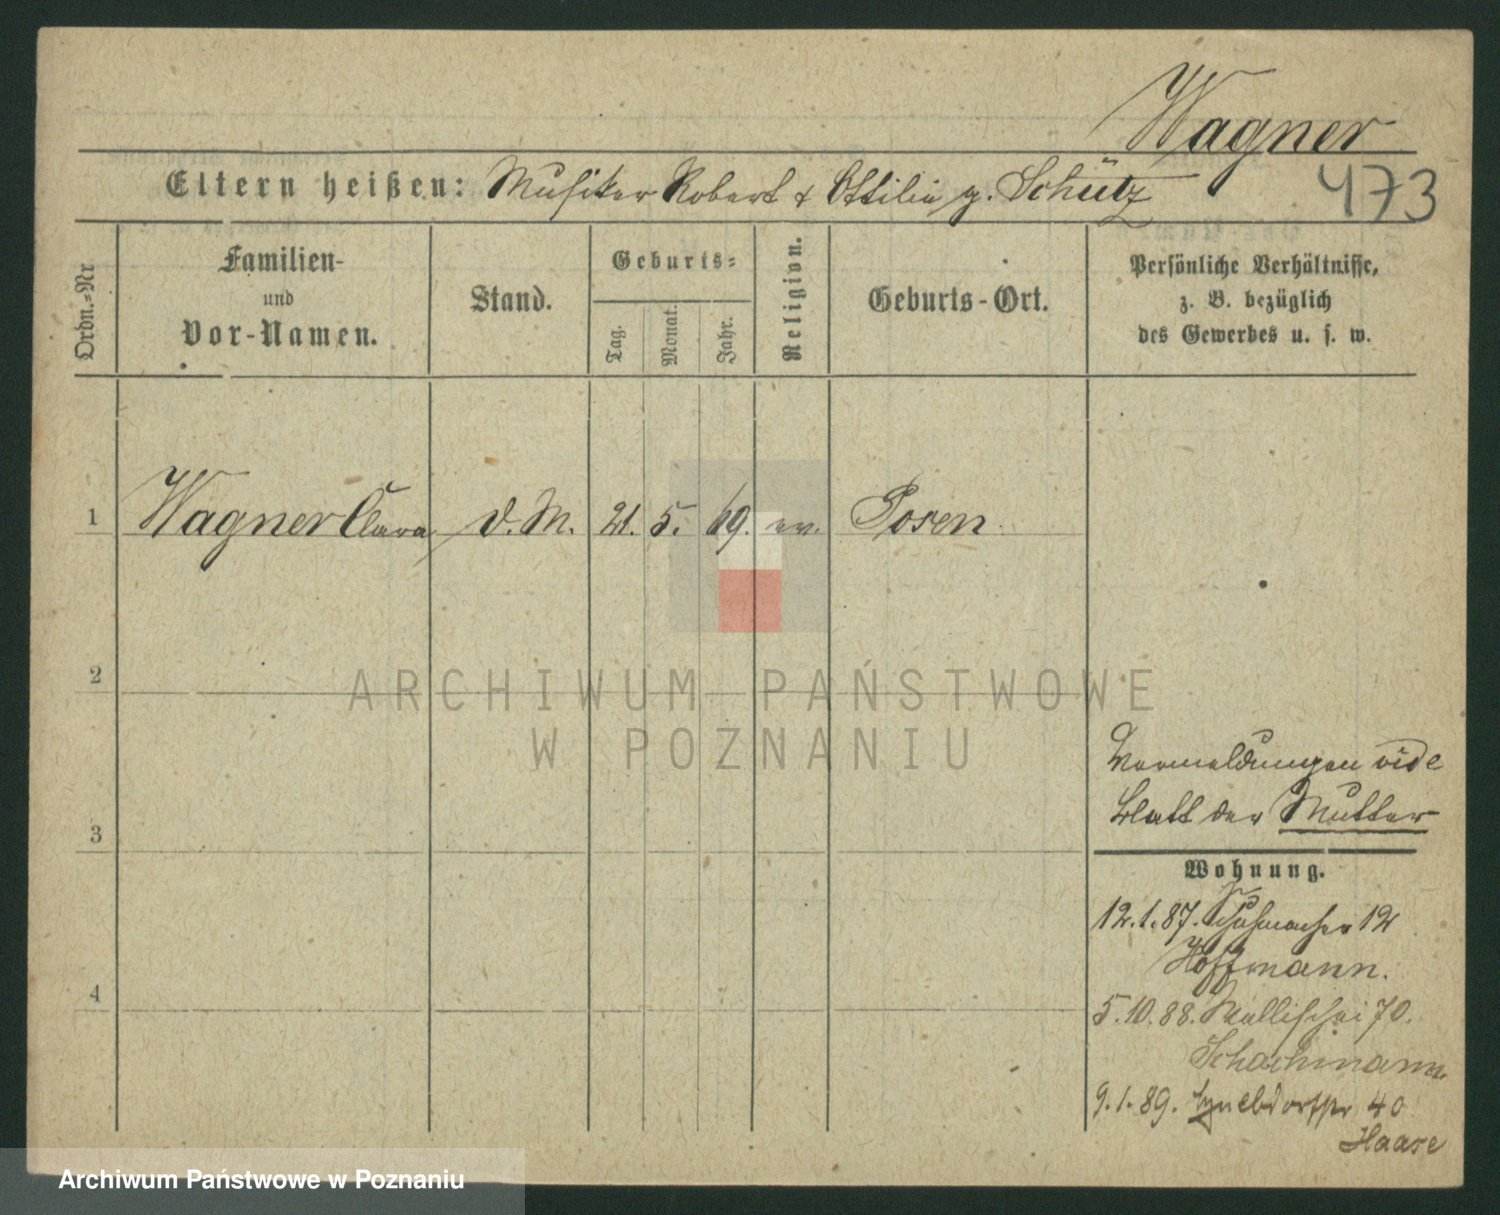 Wagner
Eltern heißen: Musiker Robert & Ottilie g. Schütz
473
Ordn.=Nr.
Familien-
und
Vor-Namen.
Stand.
Geburts=
Tag.
Monat.
Jahr.
Religion.
Geburts-Ort.
Persönliche Verhältnisse,
z. B. bezüglich
des Gewerbes u. s. w.
1 Wagner Clara d. M. 21. 5. 69. ev. Posen
2
ARCHIWUM PAŃSTWOWE
W POZNANIU
Vermeldungen vide
Blatt der Mutter
3
Wohnung.
12.1.87. Schuhmacher 12
Hoffmann.
4
5.10.88. Wallischei 70.
9.1.89. 40
Haase
Archiwum Państwowe w Poznaniu